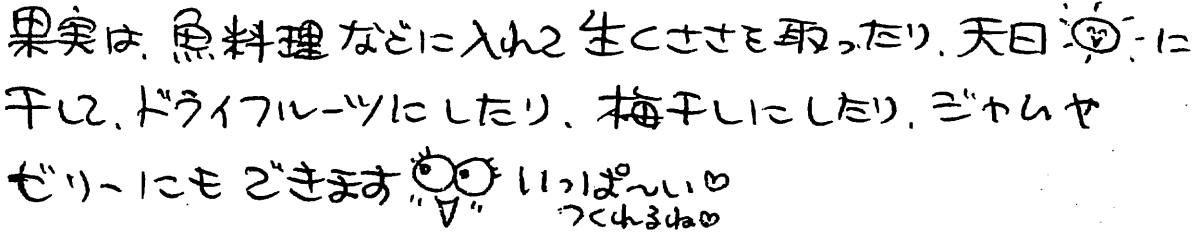 果実は、魚料理などに入れて生くささを取ったり、天日に
干して、ドライフルーツにしたり、梅干しにしたり、ジャムや
ゼリーにもできます いっぱ〜い♡
つくれるね♡